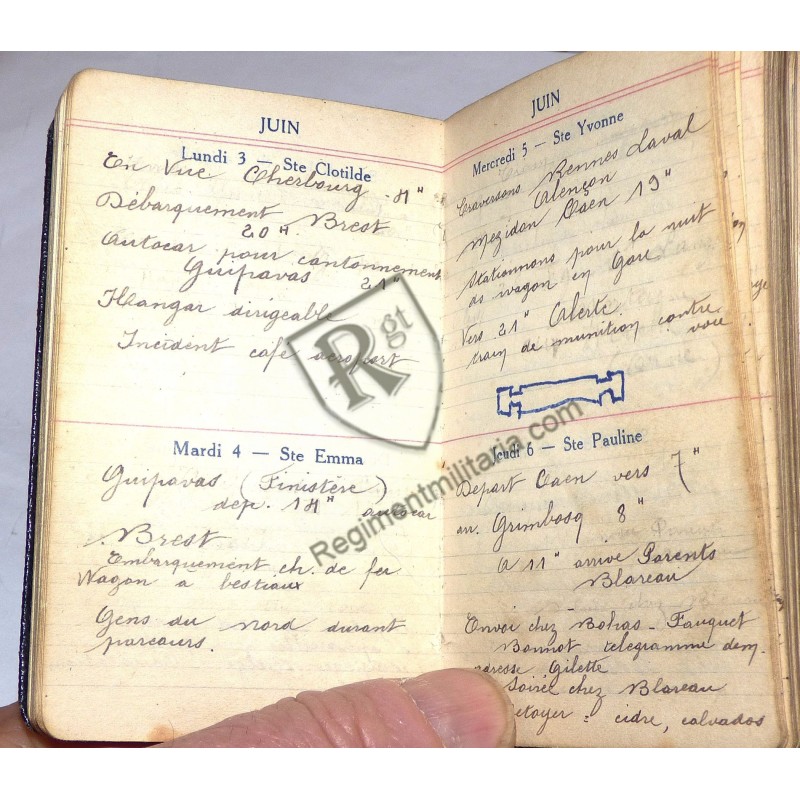 JUIN
Lundi 3 — Ste Clotilde
En Vue Cherbourg
Débarquement Brest
20H.
Autocar pour cantonnement
Guipavas 21"
Hangar dirigeable
Incident café aéroport
Mardi 4 — Ste Emma
Guipavas (Finistère)
dep. autocar
Brest
Embarquement ch. de fer
Wagon a bestiaux
Gens du Nord durant
parcours.
JUIN
Mercredi 5 — Ste Yvonne
Traversons Rennes Laval
Alençon
Mezidon Caën 19"
Stationnons pour la nuit
ds wagon en Gare
Vers 21" Alerte.
train de munition contre
voie
Jeudi 6 — Ste Pauline
Depart Caen vers 7"
arr. Grimbosq 8"
A 11" arrive Parents
Blareau
Envoi chez - Fauquet
Bonnot telegramme dem.
adresse Gilette
Soirée chez Blareau
cidre, calvados
Rgt
Regimentmilitaria.com